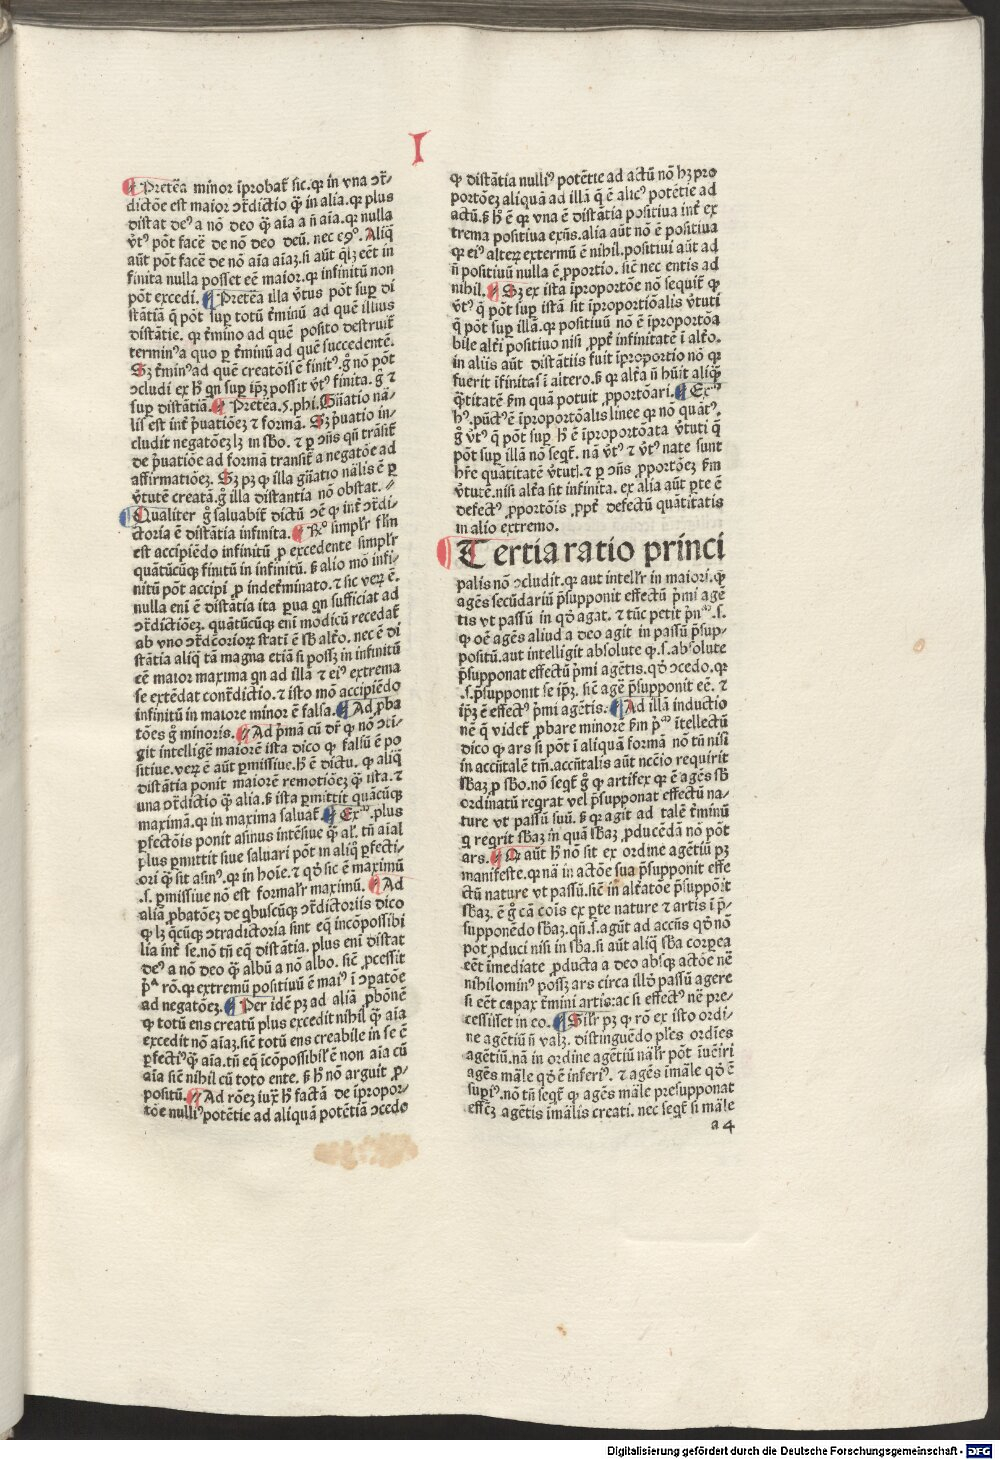 I
¶ Pretēa minor īprobat᷑ sic. qꝛ in vna ↄt᷑-
dictōe est maior ↄt᷑dictio qꝫ̄ in alia. qꝛ plus
distat deꝰ a nō deo qꝫ̄ aīa a ñ aīa. qꝛ nulla
v̓tꝰ pōt facē̓ de nō deo deū. nec e9ꝰ. Aliq̄
aūt pōt facē̓ de nō aīa aīaꝫ. si aūt qͥlꝫ eēt in
finita nulla posset eē maior. qꝛ infinitū non
pōt excedi. ¶ Pretēa illa v̓tus pōt suꝑ di
stātiā q̄ pōt suꝑ totū t᷑minū ad quē illius
distātie. qꝛ t᷑mino ad quē posito destruit᷑
terminꝰ a quo ꝑ t᷑minū ad quē succedentē.
Sꝫ t᷑minꝰ ad quē creatōis ē finitꝰ. gͦ nō pōt
ↄcludi ex hͦ qn suꝑ ip̄ꝫ possit v̓tꝰ finita. gͦ ⁊
suꝑ distātiā. ¶ Pretēa. 5. phi. Gn̄atio nā-
lis est int᷑ p̄uatiōeꝫ ⁊ formā. Sꝫ p̄uatio in-
cludit negatōeꝫ lꝫ in sbͦo. ⁊ ꝑ ↄn̄s qn̄ trāsit᷑
de p̄uatiōe ad formā transit᷑ a negatōe ad
affirmatiōeꝫ. Sꝫ pꝫ ꝙ illa gn̄atio nālis ē ꝑ
v̓tutē creatā. gͦ illa distantia nō obstat.
Qualiter gͦ saluabit᷑ dictū ↄē ꝙ int᷑ ↄt᷑di-
ctoria ē distātia infinita. ¶ Rͦ simplr̄ fl̄m
est accipiēdo infinitū ꝓ excedente simplr̄
quātūcūqꝫ finitū in infinitū. sꝫ alio mō infi-
nitū pōt accipi ꝓ indet᷑minato. ⁊ sic veꝝ ē.
nulla eni ē distātia ita ꝑua qn sufficiat ad
ↄt᷑dictiōeꝫ. quātūcūqꝫ eni modicū recedat᷑
ab vno ↄt᷑dc̄orioꝝ stati ē sb̄ alt᷑o. nec ē di
stātia aliq̄ tā magna etiā si possꝫ in infinitū
eē maior maxima qn ad illā ⁊ eiꝰ extrema
se extēdat cont᷑dictio. ⁊ isto mō accipiēdo
infinitū in maiore minor ē falsa. ¶ Ad ꝓba
tōes gͦ minoris. ¶ Ad p̄mā cū dr̄ ꝙ nō ↄti-
git intelligē̓ maiorē ista dico ꝙ falsū ē po
sitiue. veꝝ ē aūt ꝑmissiue. hͦ ē dictu. ꝙ aliq̄
distātia ponit maiorē remotiōeꝫ qꝫ̄ ista. ⁊
una ↄt᷑dictio qꝫ̄ alia. sꝫ ista ꝑmittit quācūqꝫ
maximā. qꝛ in maxima saluat᷑. ¶ Exᵐ. plus
ꝑfectōis ponit asinus intēsiue qꝫ̄ al᷑. tn̄ aīal
plus ꝑmittit siue saluari pōt in aliqͦ ꝑfecti-
ori qꝫ̄ sit asinꝰ. qꝛ in hoīe. ⁊ qͦ sic ē maximū
.s. ꝑmissiue nō est formalr̄ maximū. ¶ Ad
aliā ꝓbatōeꝫ de qͥbuscūqꝫ ↄt᷑dictoriis dico
ꝙ lꝫ q̄cūqꝫ ↄtradictoria sint eq̄ incōpossibi
lia int᷑ se. nō tn̄ eq̄ distātia. plus eni distat
deꝰ a nō deo qꝫ̄ albū a nō albo. sic̄ ꝓcessit
p̄ᵃ rō. qꝛ extremū positiuū ē maiꝰ ī ↄꝑatōe
ad negatōeꝫ. ¶ Per idē pꝫ ad aliā ꝓbōnē
ꝙ totū ens creatū plus excedit nihil qꝫ̄ aīa
excedit nō aīaꝫ. sic̄ totū ens creabile in se ē
ꝑfectiꝰ qꝫ̄ aīa. tn̄ eq̄ icōpossibil᷑ ē non aīa cū
aīa sic̄ nihil cū toto ente. sꝫ hͦ nō arguit ꝓ-
positū. ¶ Ad rōeꝫ iuxͣ hͦ factā de īpropor-
tōe nulliꝰ potētie ad aliquā potētiā ↄcedo
ꝙ distātia nulliꝰ potētie ad actū nō hꝫ pro
portōeꝫ aliquā ad illā q̄ ē alicꝰ potētie ad
actū. sꝫ hͦ ē qꝛ vna ē distātia positiua int᷑ ex
trema positiua exn̄s. alia aūt nō ē positiua
qꝛ eiꝰ alteꝝ extermū ē nihil. positiui aūt ad
ñ positiuū nulla ē ꝓportio. sic̄ nec entis ad
nihil. ¶ Sꝫ ex ista īproportōe nō sequit᷑ ꝙ
v̓tꝰ q̄ pōt suꝑ istā sit īproportiōalis v̓tuti
q̄ pōt suꝑ illā. qꝛ positiuū nō ē īproportōa
bile alt᷑i positiuo nisi ꝓpt᷑ infinitatē ī alt᷑o.
in aliis aūt distātiis fuit īproportio nō qꝛ
fuerit īfinitas ī altero. sꝫ qꝛ alt᷑a ñ hūit aliqꝫ̄
qͣtitatē fm quā potuit ꝓportōari. ¶ Exᵐ
hꝰ. pūctꝰ ē īproportōalis linee qꝛ nō quātꝰ.
gͦ v̓tꝰ q̄ pōt suꝑ hͦ ē īproportōata v̓tuti q̄
pōt suꝑ illā nō seqͥt᷑. nā v̓tꝰ ⁊ v̓tꝰ nate sunt
hr̄e quātitatē v̓tutꝭ. ⁊ ꝑ ↄn̄s ꝓportōeꝫ fm
v̓tutē. nisi alt᷑a sit infinita. ex alia aūt ꝑte ē
defectꝰ ꝓportōis ꝓpt᷑ defectū quātitatis
in alio extremo.
¶ Tertia ratio princi
palis nō ↄcludit. qꝛ aut intellr̄ in maiori. ꝙ
agēs secūdariū p̄supponit effectū p̄mi agē
tis vt passū in qͦ agat. ⁊ tūc petit p̄nᵐ. .s.
ꝙ oē agēs aliud a deo agit in passū p̄sup-
positū. aut intelligit absolute ꝙ .s. absolute
p̄supponat effectū p̄mi agētis. qͦ ↄcedo. qꝛ
.s. p̄supponit se ip̄ꝫ. sic̄ agē̓ p̄supponit eē. ⁊
ip̄ꝫ ē effectꝰ p̄mi agētis. ¶ Ad illā inductio
nē q̄ videt᷑ ꝓbare minorē fm p̄ᵐ ītellectū
dico ꝙ ars si pōt ī aliquā formā nō tn̄ nisi
in accn̄talē tm̄. accn̄talis aūt ncc̄io requirit
sb̄aꝫ ꝓ sbͦo. nō seqͥt᷑ gͦ ꝙ artifex qꝛ ē agēs sb̄
ordinatū reqͥrat vel p̄supponat effectū na-
ture vt passū suū. sꝫ qꝛ agit ad talē t᷑minū
qͥ reqͥrit sb̄aꝫ in quā sb̄aꝫ ꝓducēdā nō pōt
ars. ¶ Qꝛ aūt hͦ nō sit ex ordine agētiū pꝫ
manifeste. qꝛ nā in actōe sua p̄supponit effe
ctū nature vt passū. sic̄ in alt᷑atōe p̄suppōit
sb̄aꝫ. ē gͦ cā cōis ex ꝑte nature ⁊ artis ī p̄-
supponēdo sb̄aꝫ. qn̄ .s. agūt ad accn̄s qͦ nō
pōt ꝓduci nisi in sb̄a. si aūt aliq̄ sb̄a corꝑea
eēt īmediate ꝓducta a deo absqꝫ actōe nē̓
nihilominꝰ possꝫ ars circa illō passū agere
si eēt capax t᷑mini artis: ac si effectꝰ nē̓ pre-
cessisset in eo. ¶ Silr̄ pꝫ ꝙ rō ex isto ordi-
ne agētiū ñ valꝫ. distinguēdo ples ordīes
agētiū. nā in ordine agētiū nālr̄ pōt iuēiri
agēs māle qͦ ē inferiꝰ. ⁊ agēs īmāle qͦ ē
supiꝰ. nō tn̄ seqͥt᷑ ꝙ agēs māle presupponat
effcꝫ̄ agētis īmālis creati. nec seqͥt᷑ si māle
a 4
Digitalisierung gefördert durch die Deutsche Forschungsgemeinschaft - DFG